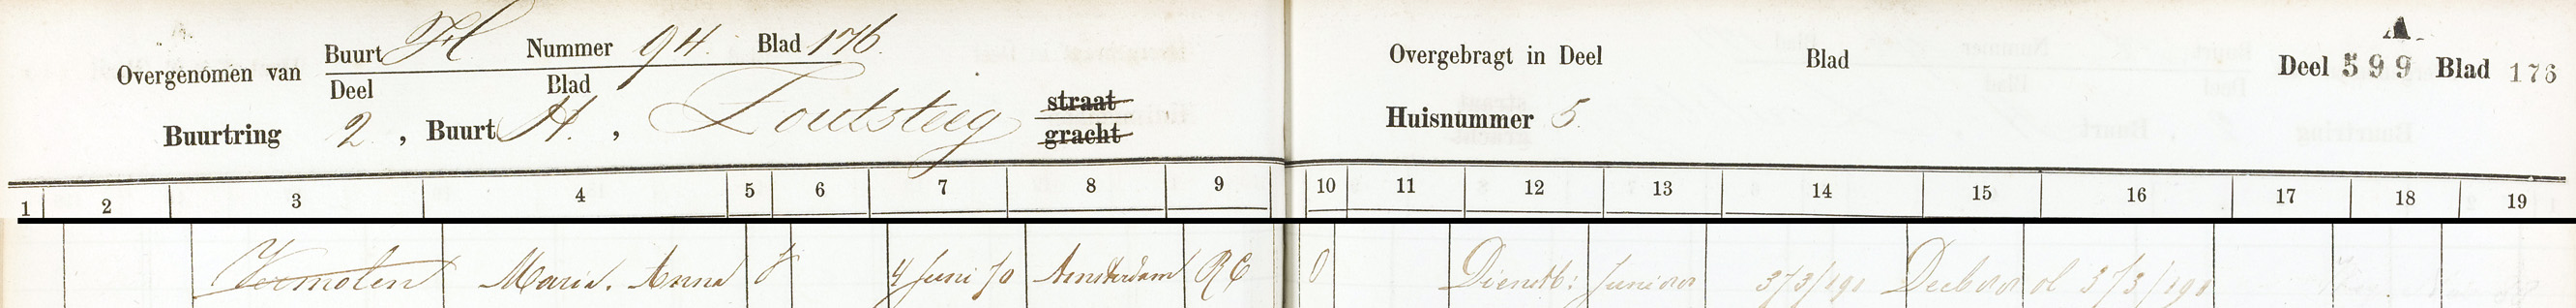 Overgenomen van Buurt H Nummer 94. Blad 176.
Deel Blad
Buurtring 2, Buurt H., Zoutsteeg straat gracht
Overgebragt in Deel Blad
Huisnummer 5.
A
Deel 599 Blad 176
1 2 3 4 5 6 7 8 9 10 11 12 13 14 15 16 17 18 19
Vermolen Maria. Anna 4 Juni 70 Amsterdam RC O Dienstb: